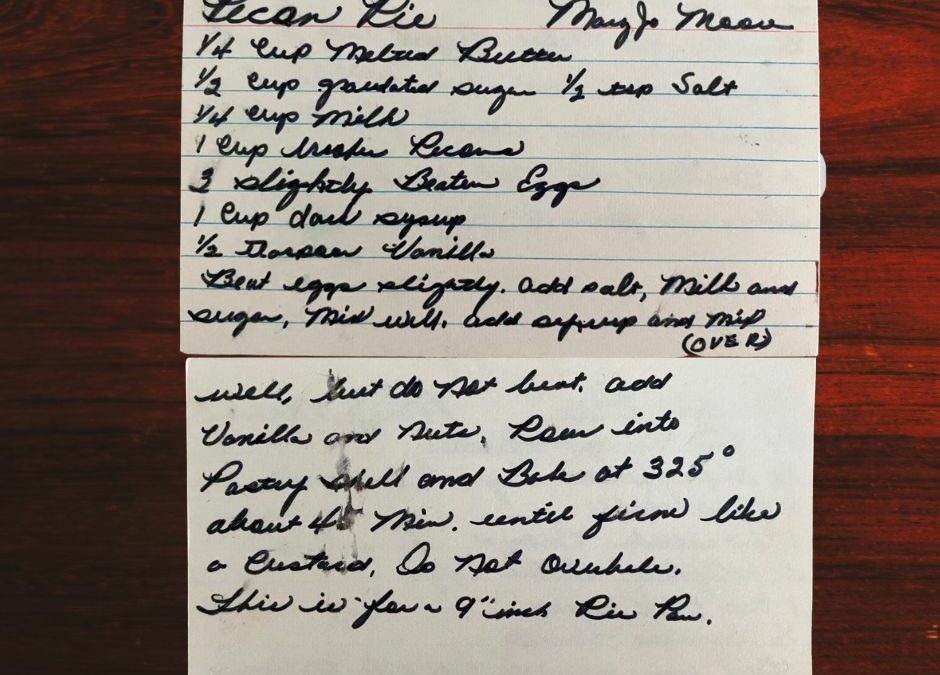 Pecan Pie Mary Jo Moore
1/4 Cup Melted Butter
1/2 Cup granulated sugar 1/2 tsp Salt
1/4 cup Milk
1 Cup broken Pecans
3 slightly Beaten Eggs
1 Cup dark syrup
1/2 teaspoon Vanilla
Beat eggs slightly. add salt, Milk and
sugar, Mix well. add syrup and mix
(OVER)
well, but do not beat. add
Vanilla and Nuts. Pour into
Pastry shell and Bake at 325°
about Min. until firm like
a Custard. Do Not Overbake.
This is for a 9" inch Pie Pan.